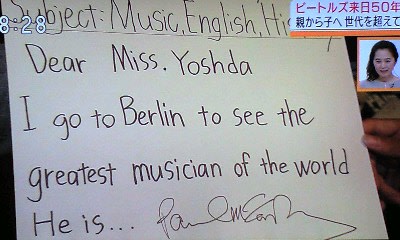 8:28
ビートルズ来日50年
親から子へ 世代を超えて
Subject: Music, English,
Dear Miss. Yoshda
I go to Berlin to see the
greatest musician of the world
He is...